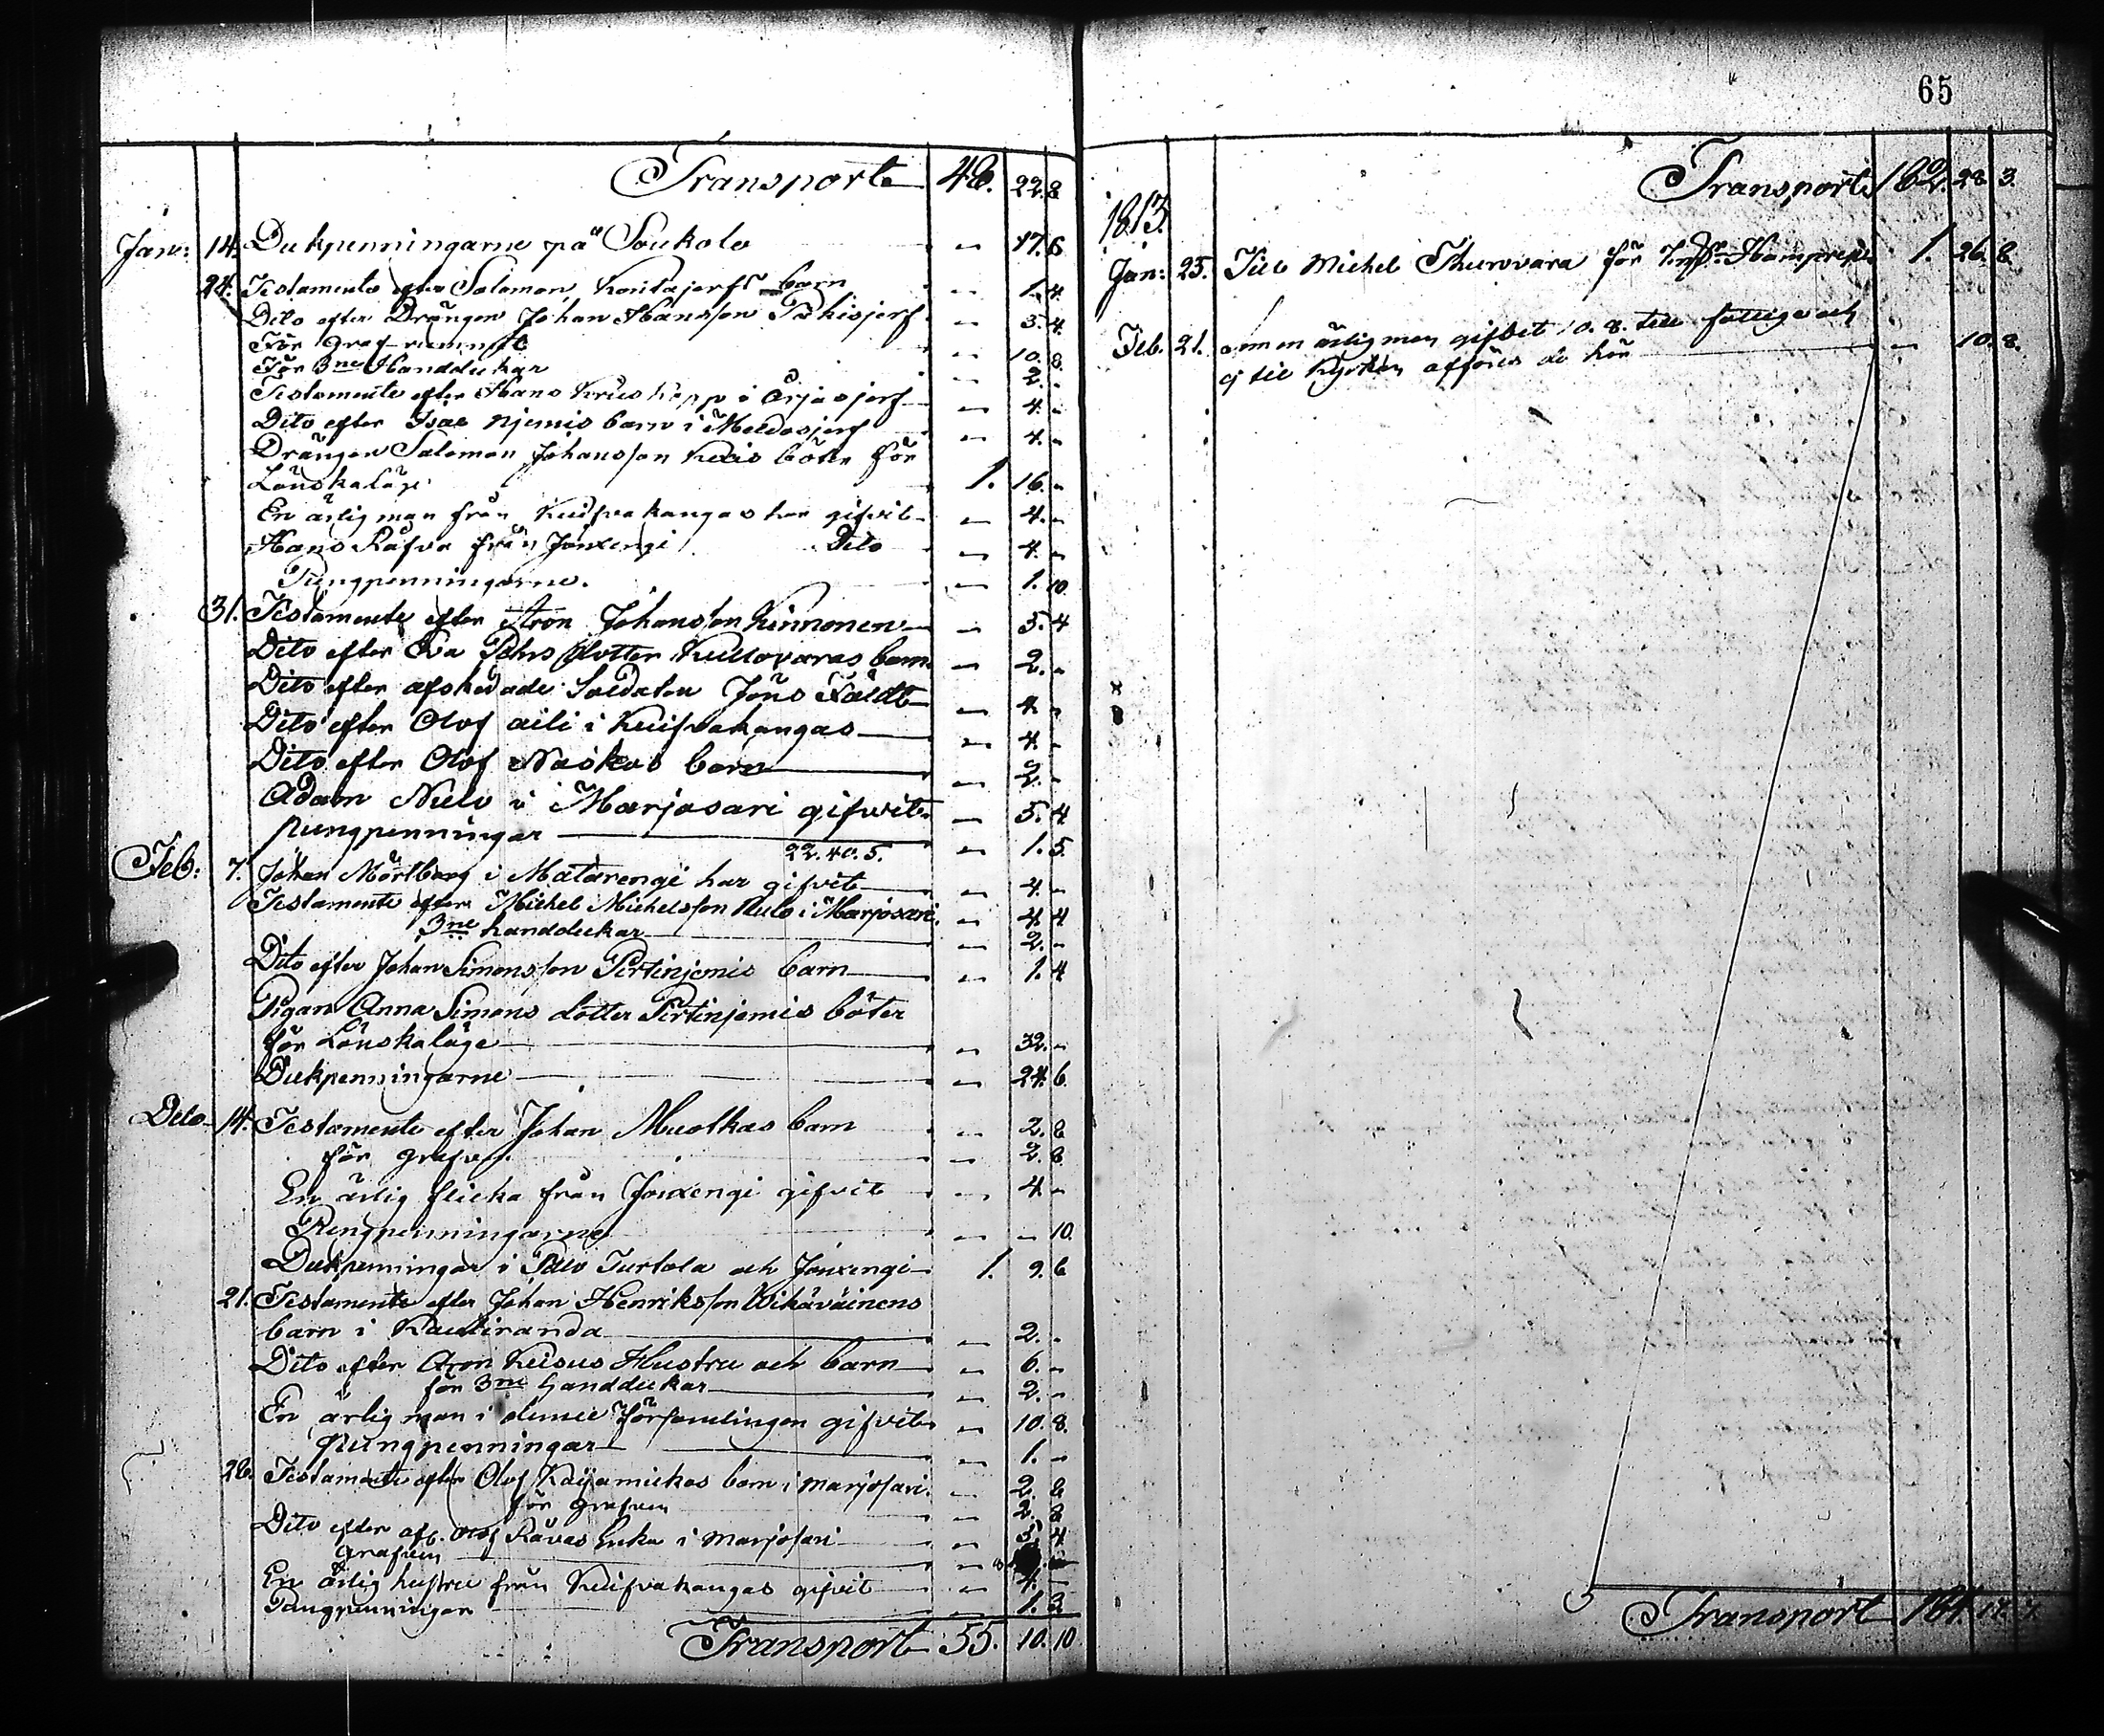 Transport 46. 22. 8
Jan: 14. Dukpenningarne på Soukolo — 17. 6
24. Testamente efter Salomon barn — 1. 4.
Dito efter Drängen Johan Hansson — 5. 4.
För graf — 10. 8.
För 3ne Handdukar — 2. -
Testamente efter Hans i — 4. -
Dito efter Isac Njemis barn i — 4. -
Drängen Salomon Johansson böter för
Lönskaläge 1. 16. -
En ärlig man från Kuifvakangas har gifvit — 4. -
Hans Räfva från Jouxengi Dito — 4. -
Pungpenningarne. — 1. 10.
31. Testamente efter Aron Johansson Kinnonen — 5. 4
Dito efter Eva Pehrs dotter barn — 2. -
Dito efter afskedade Soldaten Jöns Fäldt — 4. -
Dito efter Olof Aili i Kuifvakangas — 4. -
Dito efter Olof Naskas barn — 2. -
Adam Nielo i Marjosari gifvit — 5. 4
pungpenningar — 1. 5.
22. 40. 5.
Feb: 7. Johan Mörtberg i Matarengi har gifvit — 4. -
Testamente efter Michel Michelsson i Marjosari — 4. 4
3ne handdukar — 2. -
Dito efter Johan Simonsson Pertinjemis barn — 1. 4
Pigan Anna Simons dotter Pertinjemis böter
för Lönskaläge — 32. -
Dukpenningarne — 24. 6.
Dito 14. Testamente efter Johan Muotkas barn — 2. 8
för grafven — 2. 8.
En ärlig flicka från Jouxengi gifvit — 4 -
Pengpenningarne — - 10.
Dukpenningar i Pello Turtola och Jouxengi 1. 9. 6
21. Testamente efter Johan Henriksson
barn i Kauliranda — 2. -
Dito efter Aron Hustru och barn — 6. -
för 3ne handdukar — 2. -
En ärlig man i denne Församlingen gifvit — 10. 8.
pungpenningar — 1. -
28. Testamente efter Olof barn i marjosari — 2. 8
för grafven — 2. 8
Dito efter afl. Olof Rävas Enka i marjosari — 5. 4
grafven
En ärlig hustru från Kuifvakangas gifvit — 4. -
Pungpenningar — 1. 3.
Transport 55. 10. 10
65
Transport 182. 28. 3.
1813.
Jan: 25. Till Michel Thurovara för 1. 26. 8
Feb. 21. en ärlig man gifvet 10. 8. till fattige och
ej till Kyrkan afföres de här — 10. 8.
Transport 184.